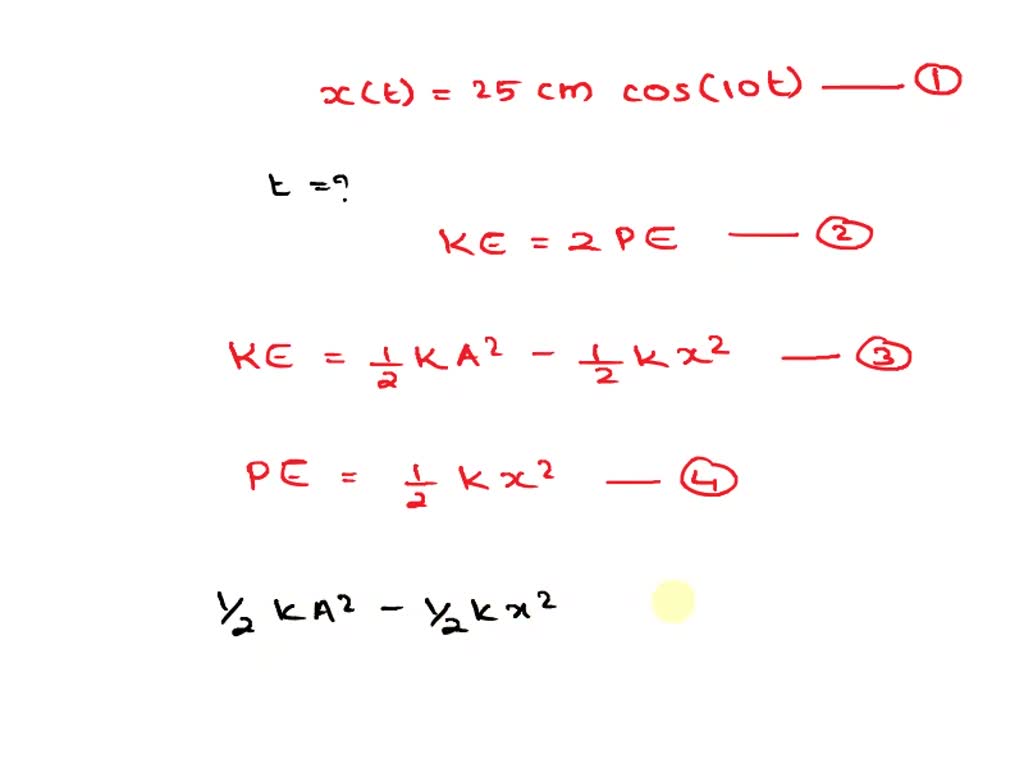 x(t) = 25 cm cos(10t) —— ①
t = ?
KE = 2 PE —— ②
KE = 1/2 KA² - 1/2 Kx² —— ③
PE = 1/2 Kx² —— ④
1/2 KA² - 1/2 Kx²